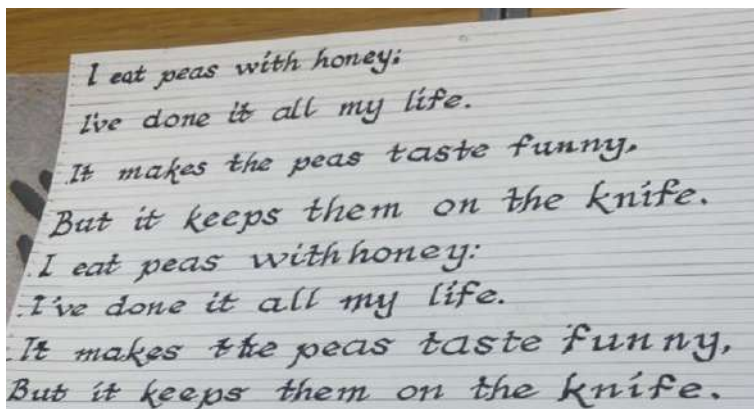 I eat peas with honey:
I've done it all my life.
It makes the peas taste funny,
But it keeps them on the knife.
I eat peas with honey:
I've done it all my life.
It makes the peas taste funny,
But it keeps them on the knife.